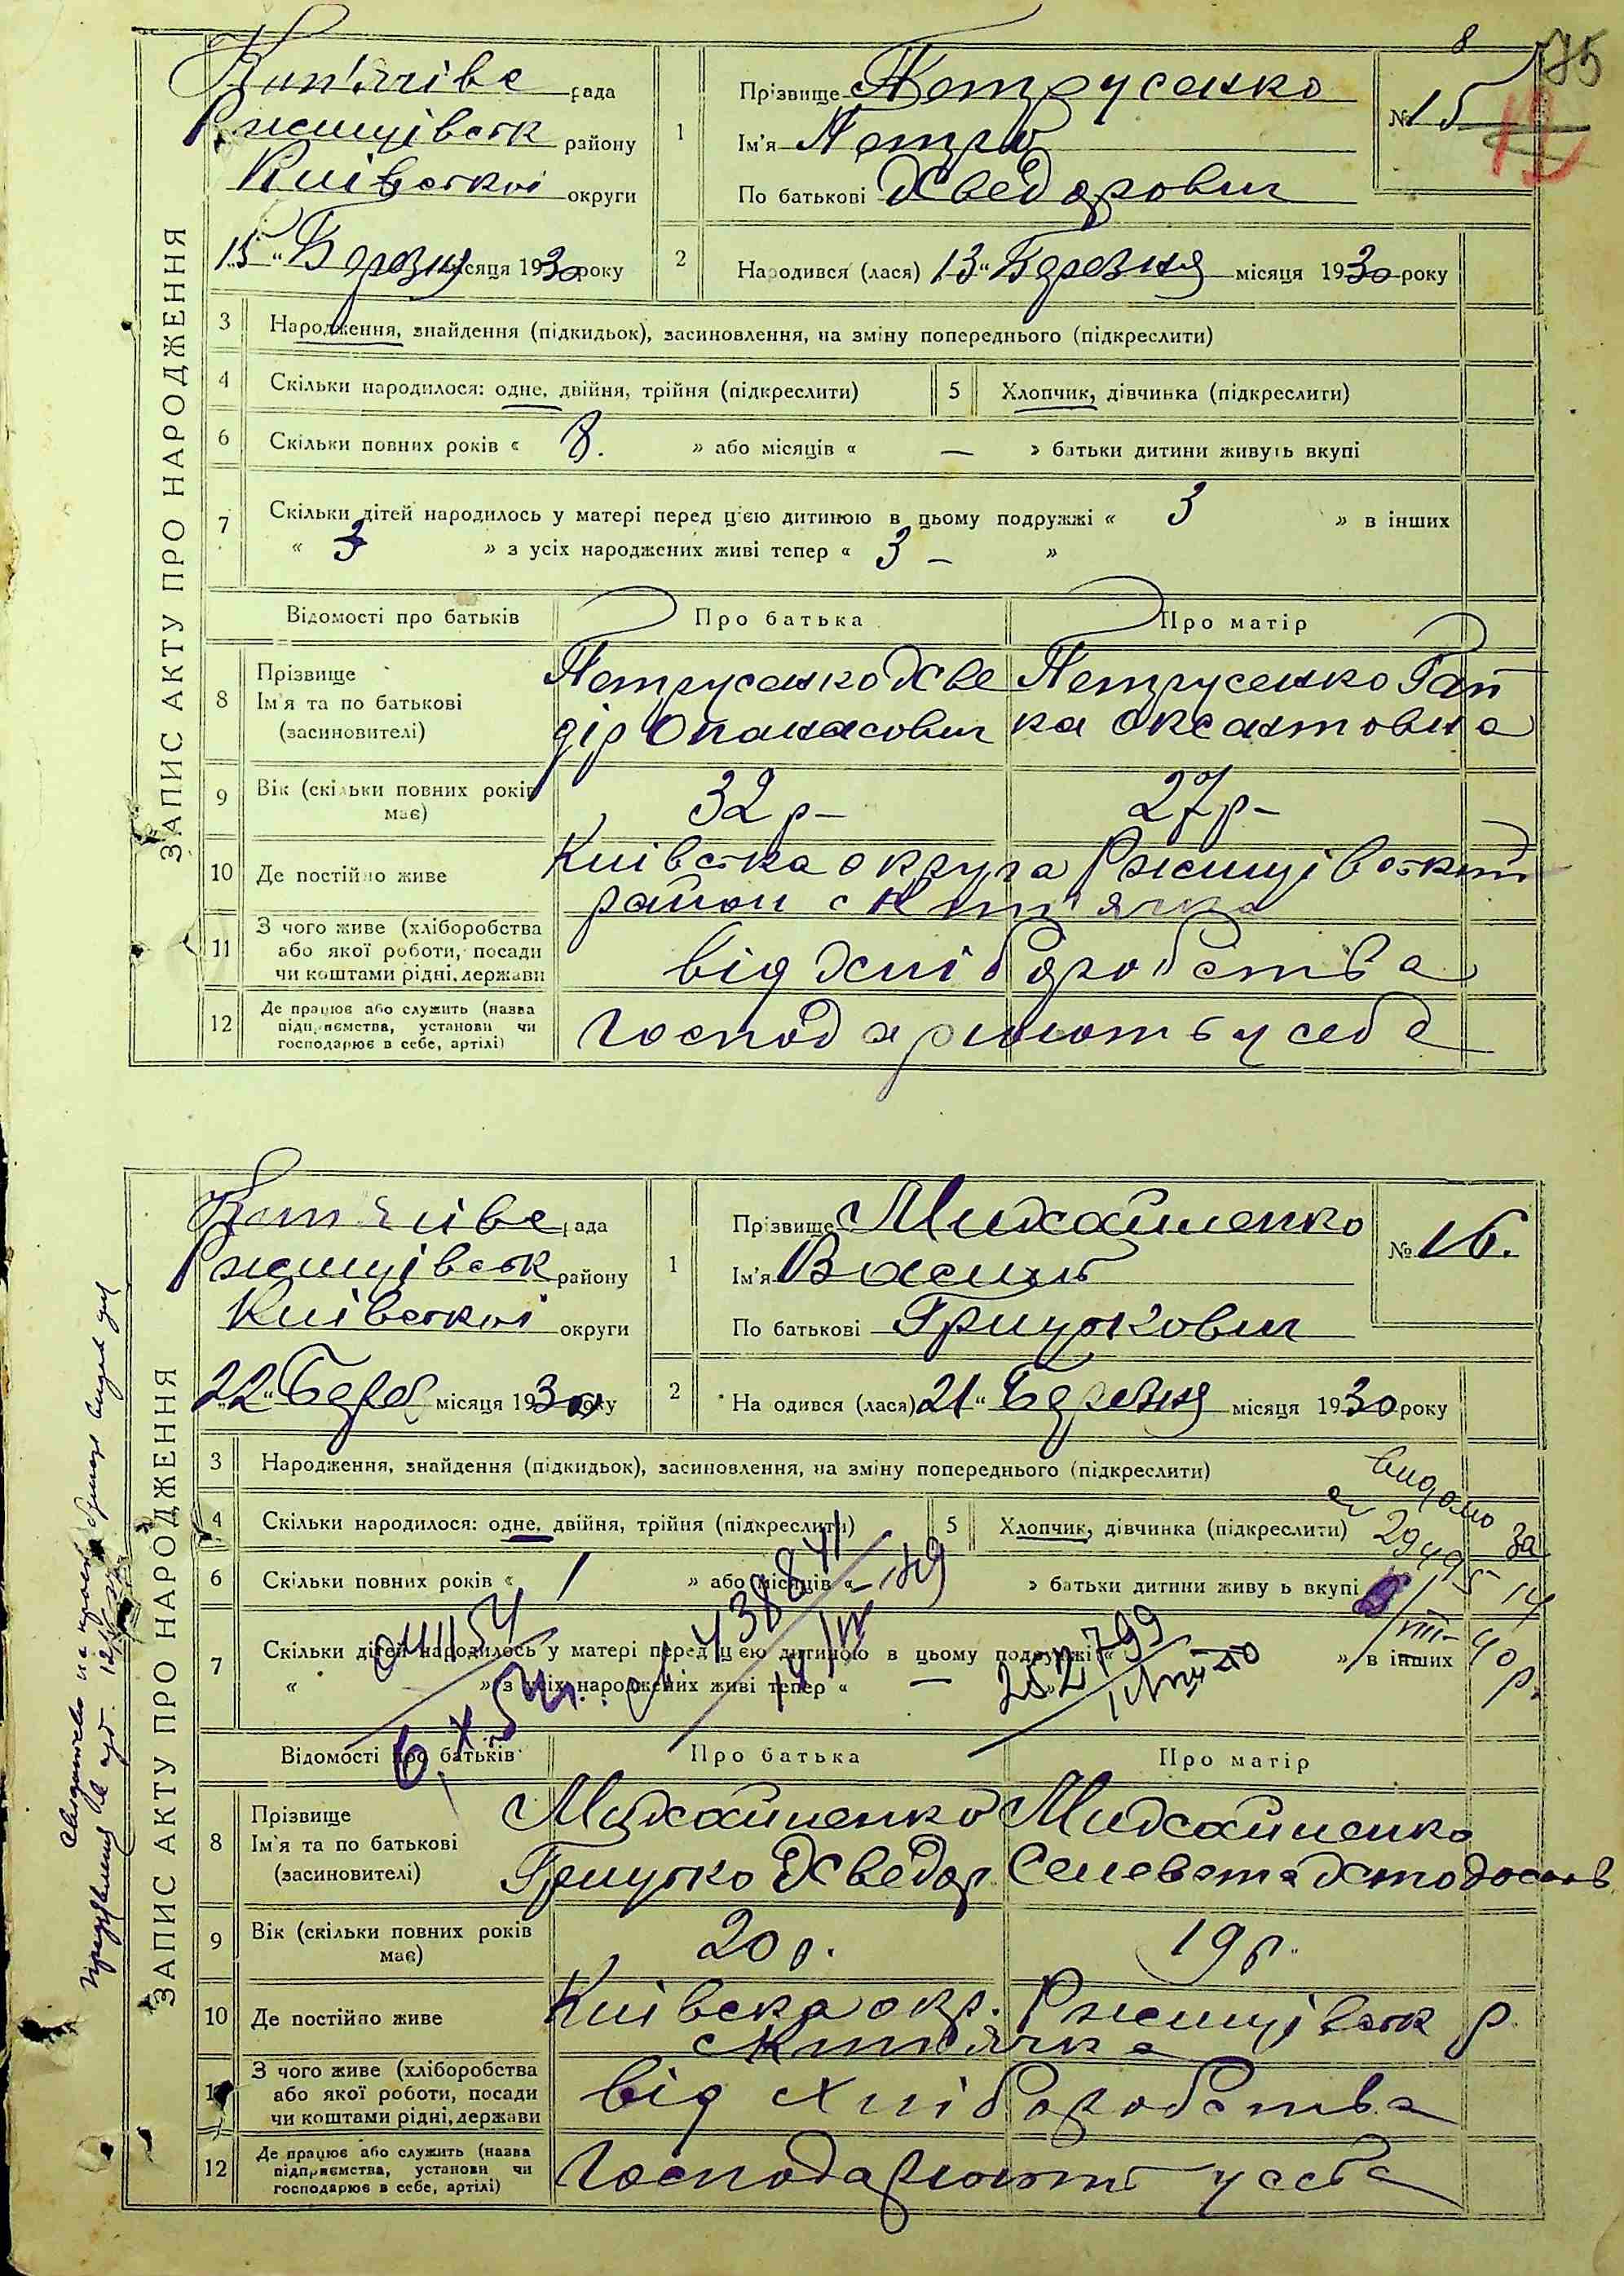 8
175
рада
Ржищівськ району
Київської округи
ЗАПИС АКТУ ПРО НАРОДЖЕННЯ
1
Прізвище Петрусенко
Ім'я Петро
По батькові Хведорович
№ 15
15 " Березня місяця 1930 року
2
Народився (лася) 13 " Березня місяця 1930 року
3 Народження, знайдення (підкидьок), засиновлення, на зміну попереднього (підкреслити)
4 Скільки народилося: одне, двійня, трійня (підкреслити)
5 Хлопчик, дівчинка (підкреслити)
6 Скільки повних років « 8. » або місяців « — » батьки дитини живуть вкупі
7 Скільки дітей народилось у матері перед цією дитиною в цьому подружжі « 3 » в інших
« 3 » з усіх народжених живі тепер « 3 — »
Відомості про батьків Про батька Про матір
8 Прізвище
Ім'я та по батькові
(засиновителі)
Петрусенко Хве
дір Опанасович
Петрусенко Гап
ка Оксантовна
9 Вік (скільки повних років
має)
32 р – 27 р –
10 Де постійно живе
Київська округа Ржищівський
район с Кип'ячка
11 З чого живе (хліборобства
або якої роботи, посади
чи коштами рідні, держави
від Хліборобства
12 Де працює або служить (назва
підприємства, установи чи
господарює в себе, артілі)
Господарюють у себе
рада
Ржищівськ району
Київської округи
ЗАПИС АКТУ ПРО НАРОДЖЕННЯ
1
Прізвище Михайленко
Ім'я Василь
По батькові Грицькович
№ 16.
22 " Берез місяця 1930 року
2
Народився (лася) 21 " Березня місяця 1930 року
3 Народження, знайдення (підкидьок), засиновлення, на зміну попереднього (підкреслити)
видано
4 Скільки народилося: одне, двійня, трійня (підкреслити)
5 Хлопчик, дівчинка (підкреслити)
за
6 Скільки повних років « 1 » або місяців « — » батьки дитини живуть вкупі
14
7 Скільки дітей народилось у матері перед цією дитиною в цьому подружжі « » в інших
« » з усіх народжених живі тепер « — »
40
р.
252799
Відомості про батьків Про батька Про матір
8 Прізвище
Ім'я та по батькові
(засиновителі)
Михайленко
Грицько Хведор
Михайленко
Селевета
9 Вік (скільки повних років
має)
20 р. 19 р.
10 Де постійно живе
Київска окр. Ржищівськ р.
с Кип'ячка
11 З чого живе (хліборобства
або якої роботи, посади
чи коштами рідні, держави
від хліборобства
12 Де працює або служить (назва
підприємства, установи чи
господарює в себе, артілі)
Господарюють у себе